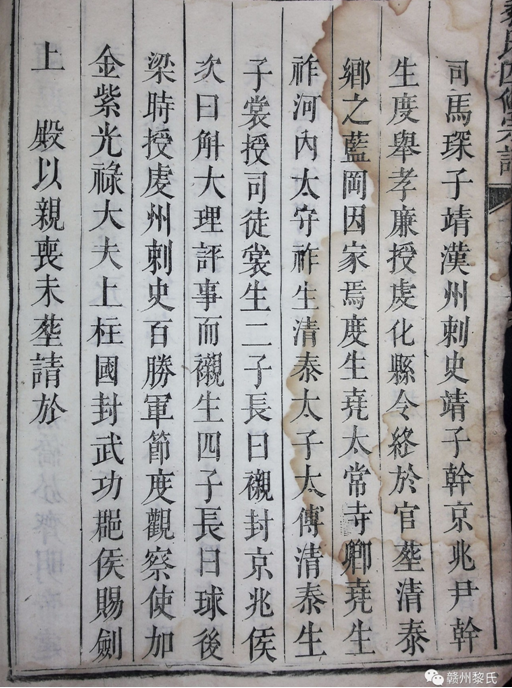 氏四修
司馬琛子靖漢州刺史靖子幹京兆尹幹
生度舉孝廉授虔化縣令終於官塟清泰
鄉之藍岡因家焉度生堯太常寺卿堯生
祚河內太守祚生清泰太子太傅清泰生
子裳授司徒裳生二子長曰襯封京兆侯
次曰斛大理評事而襯生四子長曰球後
梁時授虔州刺史百勝軍節度觀察使加
金紫光祿大夫上柱國封武功郡侯賜劍
上殿以親喪未塟請於
赣州黎氏